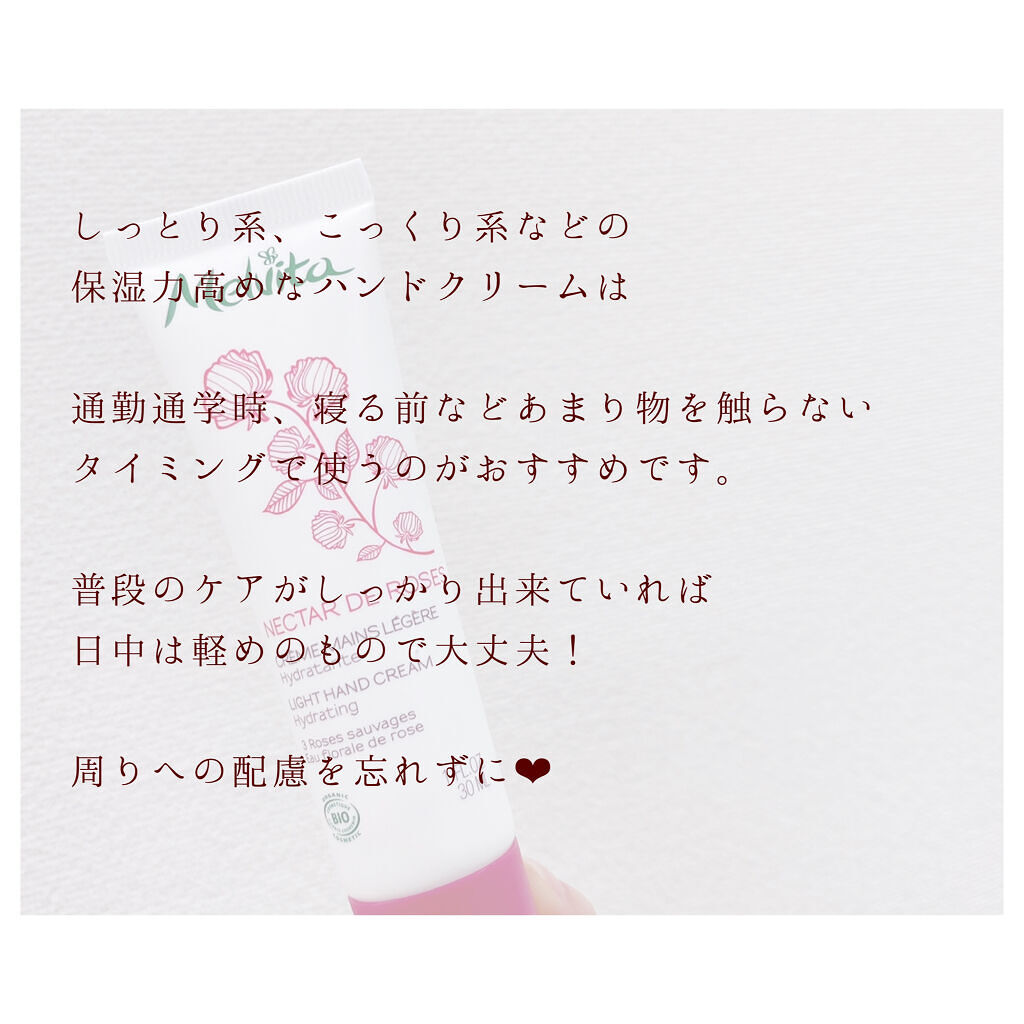 しっとり系、こっくり系などの
保湿力高めなハンドクリームは
通勤通学時、寝る前などあまり物を触らない
タイミングで使うのがおすすめです。
普段のケアがしっかり出来ていれば
日中は軽めのもので大丈夫！
周りへの配慮を忘れずに❤
Melvita
NECTAR DE ROSES
CRÈME MAINS LÉGÈRE
Hydratante
LIGHT HAND CREAM
Hydrating
3 Roses sauvages
Eau florale de rose
30 ML
BIO